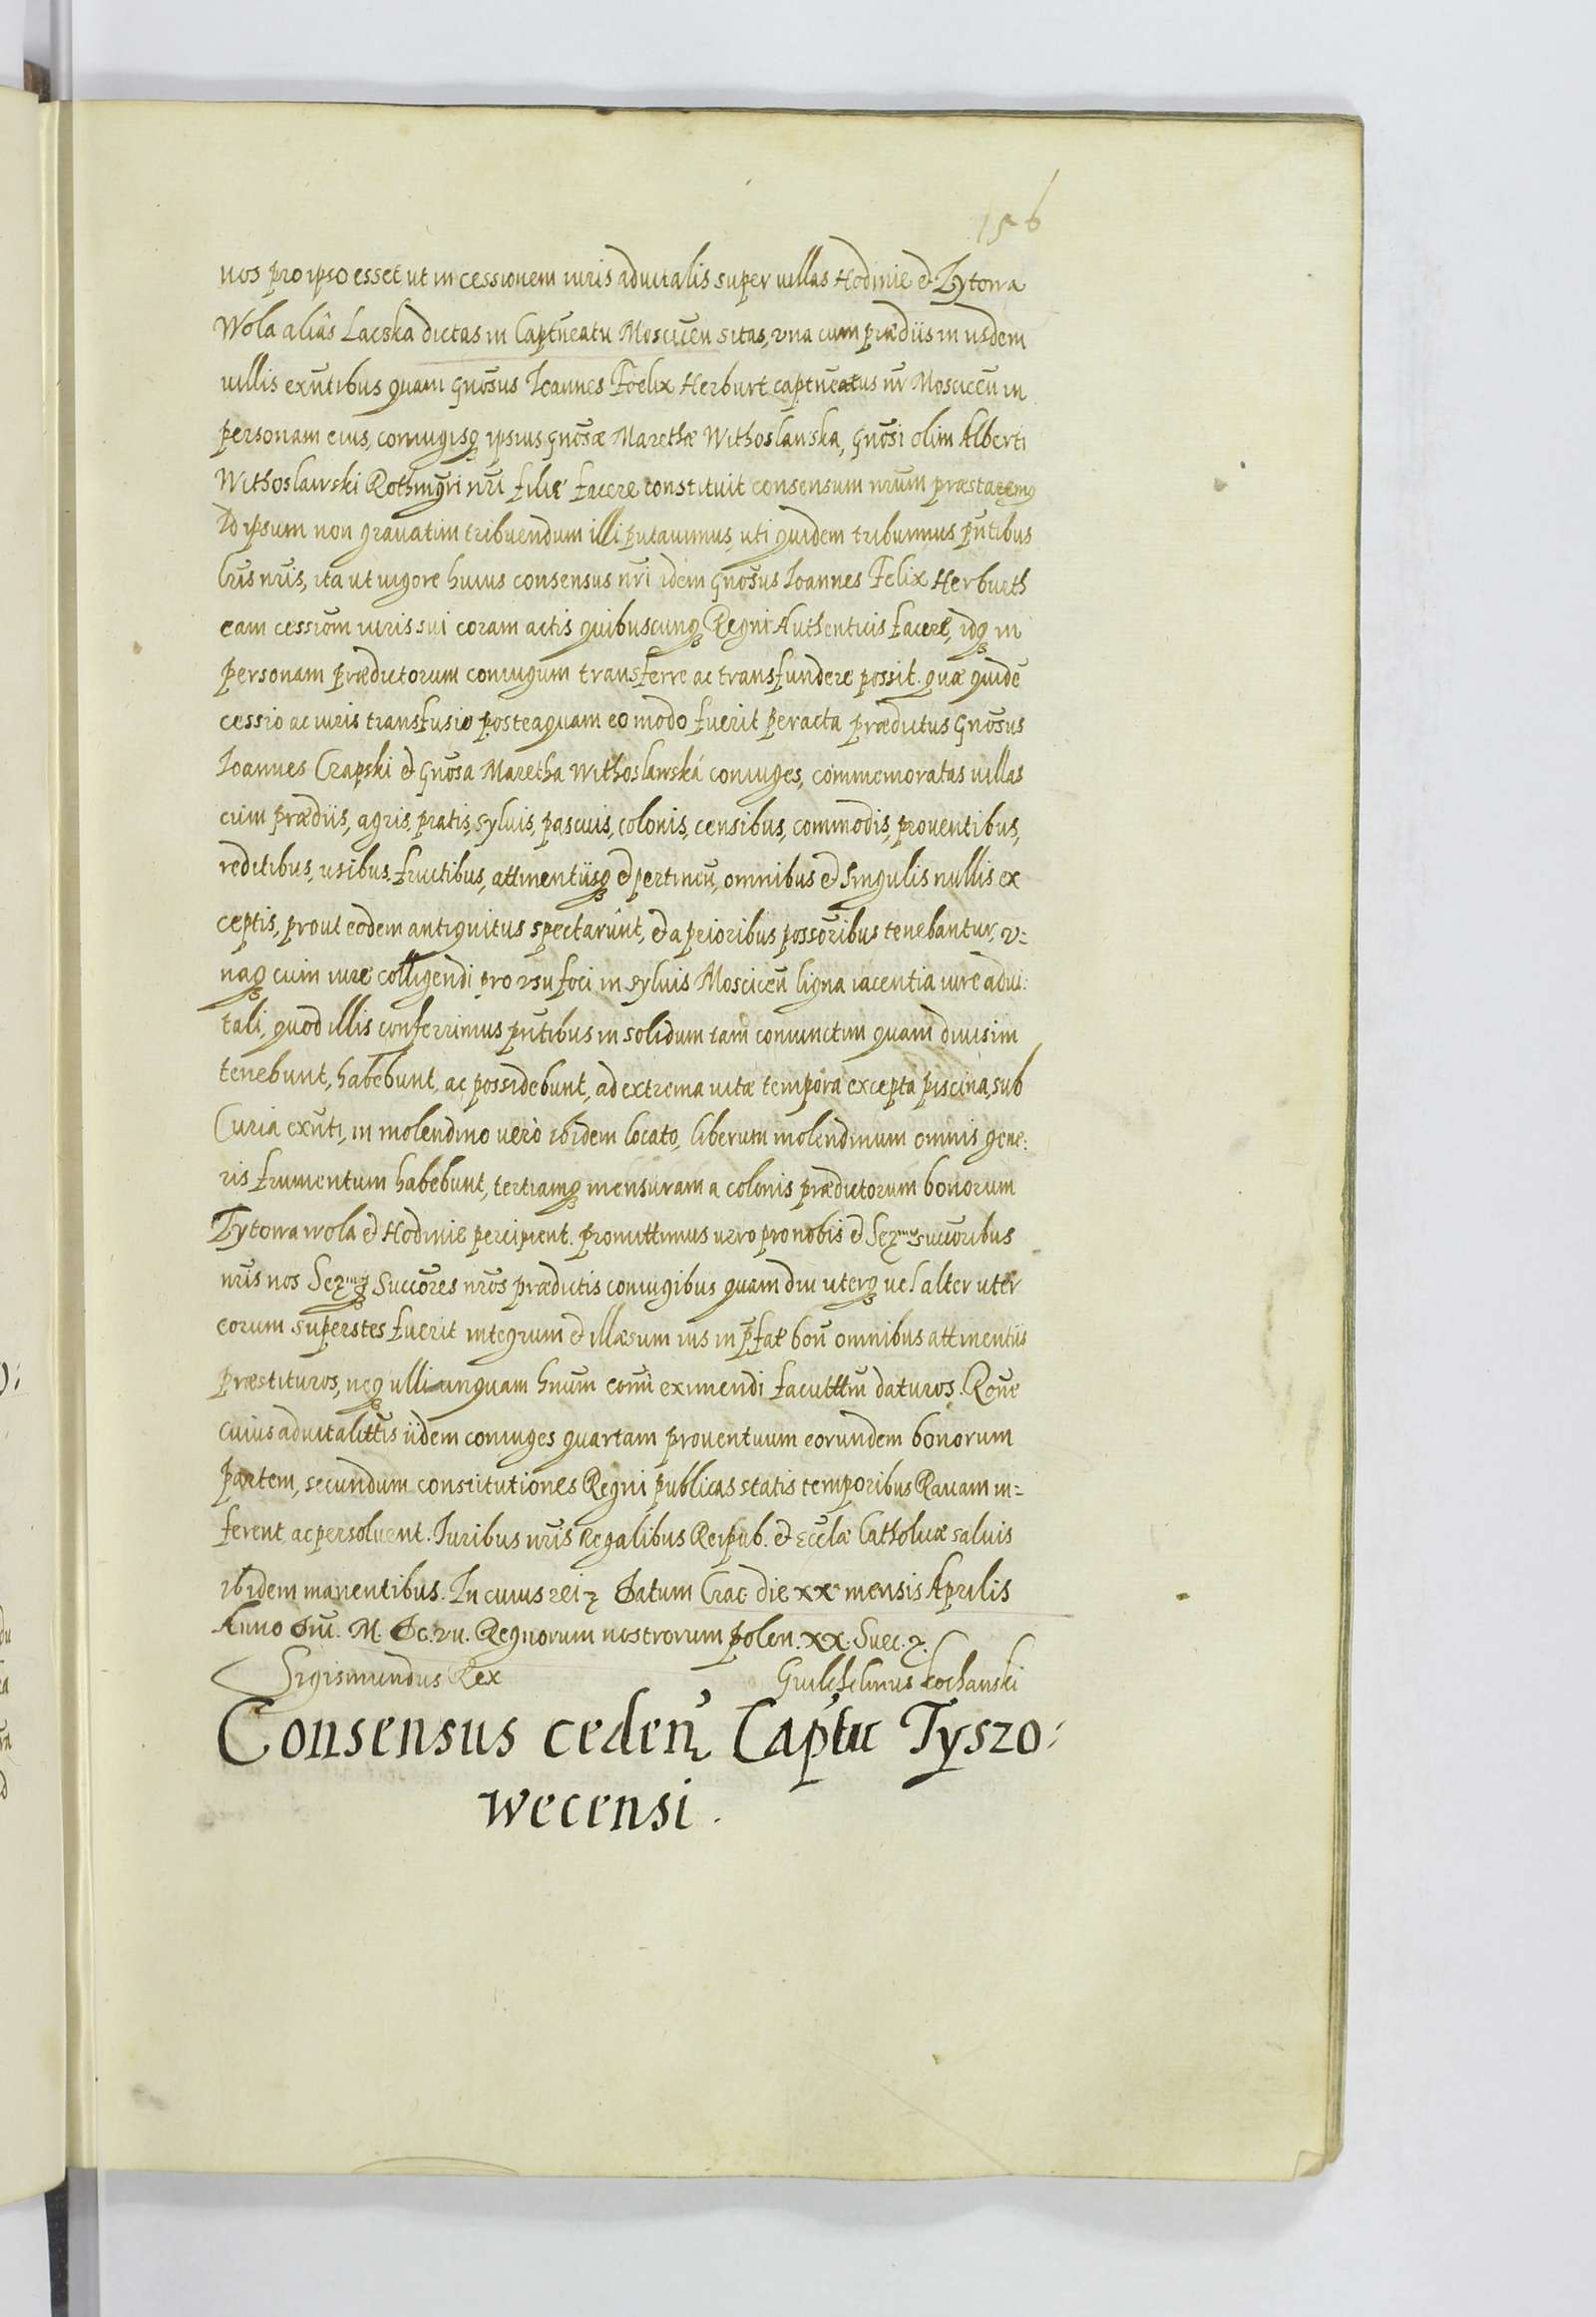 156
nos pro ipso esset, ut in cessionem iuris aduitalis super uillas Hodinie & Tytowa
Wola aliâs Lacska dictas in Captneatu Mosciceñ sitas, vna cum prædiis in iisdem
uillis exñtibus quam Gnosus Ioannes Foelix Herburt captneatus nr Mosciceñ in
personam eius, coniugisq ipsius Gnosæ Marethæ Withoslawska, Gnosi olim Alberti
Withoslawski Rothmgri nri filiæ facere constituit consensum nrum præstaremq
Id ipsum non grauatim tribuendum illi putauimus, uti quidem tribuimus pñtibus
lris nris, ita ut uigore huius consensus nri idem Gnosus Ioannes Felix Herburth
eam cessiom iuris sui coram actis quibuscunq Regni Authenticis facere, idq in
personam prædictorum coniugum transferre ac transfundere possit. quæ quidē
cessio ac iuris transfusio posteaquam eo modo fuerit peracta prædictus Gnosus
Ioannes Czapski & Gnosa Maretha Withoslawská coniuges, commemoratas uillas
cum prædiis, agris, pratis, syluis, pascuis, colonis, censibus, commodis, prouentibus,
reditibus, usibus, fructibus, attinentiisq & pertineñ, omnibus & singulis nullis ex
ceptis, prout eodem antiquitus spectarunt, & a prioribus possoribus tenebantur, v=
naq cum iure colligendi pro vsu foci in syluis Mosciceñ ligna iacentia iure adui:
tali, quod illis conferrimus pñtibus in solidum tam coniunctim quam diuisim
tenebunt, habebunt, ac possidebunt, ad extrema uitæ tempora excepta piscina, sub
Curia exñti, in molendino uerò ibidem locato, liberum molendinum omnis gene:
ris frumentum habebunt, tertiamq mensuram a colonis prædictorum bonorum
Tytowa wola & Hodinie percipient. promittimus uero pro nobis & Sermis succoribus
nris nos Sermosq Succores nros prædictis coniugibus quam diu uterq uel alter uter
eorum superstes fuerit integrum & illæsum ius in pfat boñ omnibus attinentiis
præstituros, neq ulli unquam hnum eomi eximendi facultm daturos. Rone
cuius aduitalittis iidem coniuges quartam prouentuum eorundem bonorum
partem, secundum constitutiones Regni publicas statis temporibus Rauam in=
ferent, ac persoluent. Iuribus nris Regalibus Reipub. & Eccłæ Catholicæ saluis
ibidem manentibus. In cuius rei ꝛ Datum Crac die xx mensis Aprilis
Anno Dni. M. Dc. vii. Regnorum nostrorum polen. xx. Suec. ꝛ.
Sigismundus Rex Guilhelmus Kochanski
Consensus cedeñ Captu Tyszo:
wecensi.